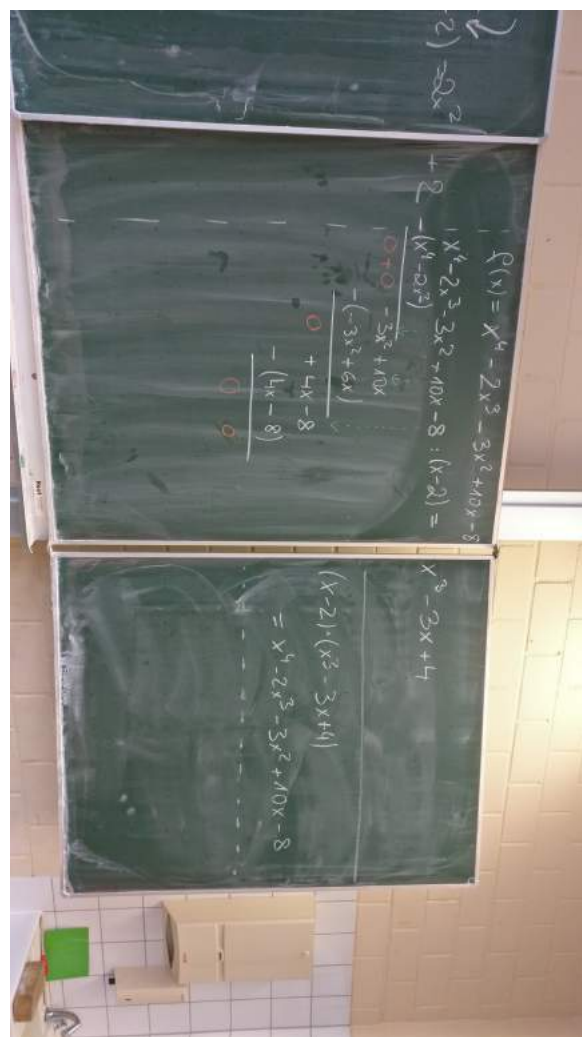 -2) = 2x²
+ 2
f(x) = x⁴ - 2x³ - 3x² + 10x - 8
x⁴ - 2x³ - 3x² + 10x - 8 : (x-2) =
-(x⁴ - 2x³)
0 + 0 - 3x² + 10x
-(-3x² + 6x)
0 + 4x - 8
- (4x - 8)
0 0
x³ - 3x + 4
(x-2)·(x³ - 3x + 4)
= x⁴ - 2x³ - 3x² + 10x - 8